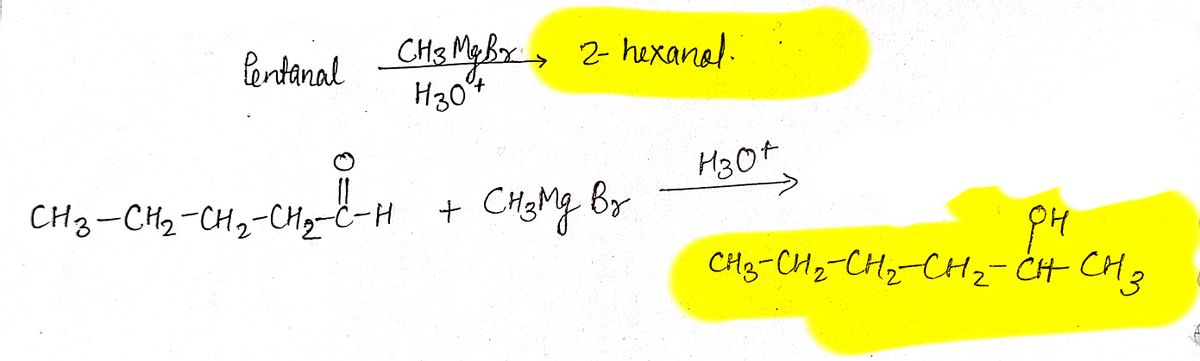 Pentanal CH3MgBr → 2-hexanol.
H3O+
O
CH3-CH2-CH2-CH2-C-H + CH3MgBr H3O+ →
OH
CH3-CH2-CH2-CH2-CH-CH3